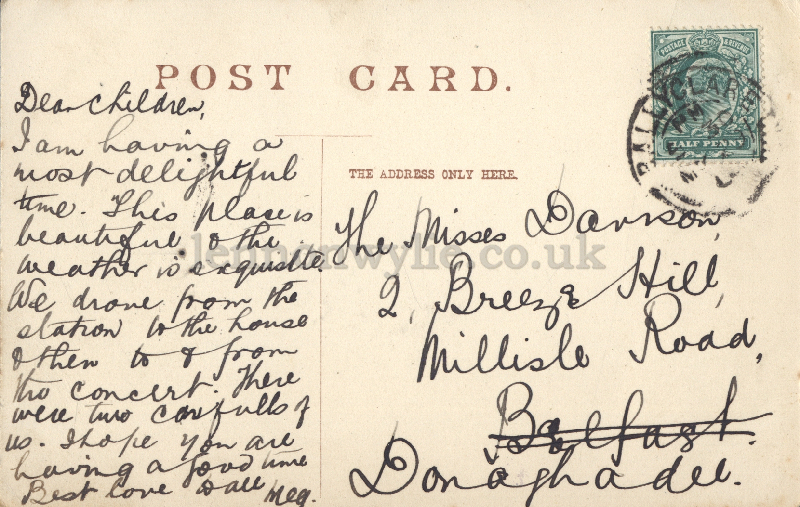 POST CARD.
Dear Children,
I am having a
most delightful
time. This place is
beautiful & the
weather is exquisite.
We drove from the
station to the house
& then to & from
the concert. There
were two carfulls of
us. I hope you are
having a good time
Best love to all Meg.
THE ADDRESS ONLY HERE.
The Misses Davison,
2, Breeze Hill,
Millisle Road,
Belfast.
Donaghadee.
POSTAGE & REVENUE
HALF PENNY
BALLYCLARE
lennonwylie.co.uk